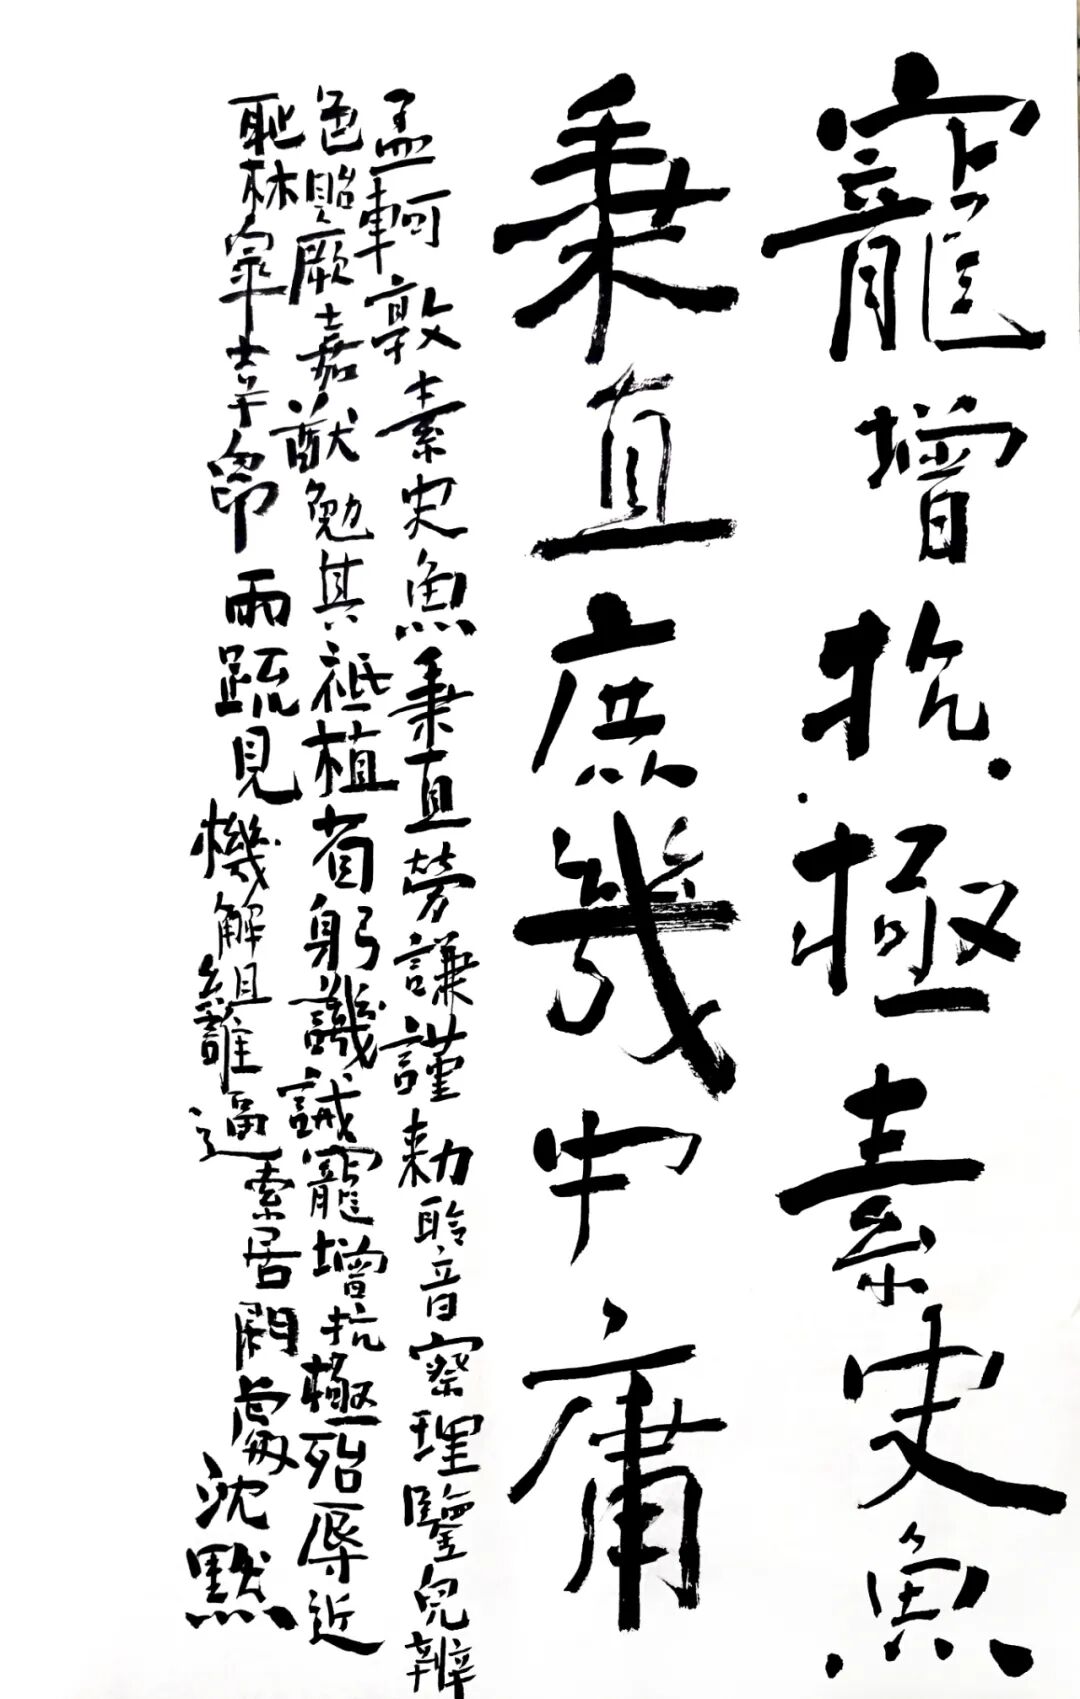 寵增抗極素史魚
秉直庶幾中庸
孟軻敦素史魚秉直勞謙謹勅聆音察理鑒皃辨
色貽厥嘉猷勉其祗植省躬譏誡寵增抗極殆辱近
耻林睾幸即兩疏見機解組誰逼索居閑處沈默